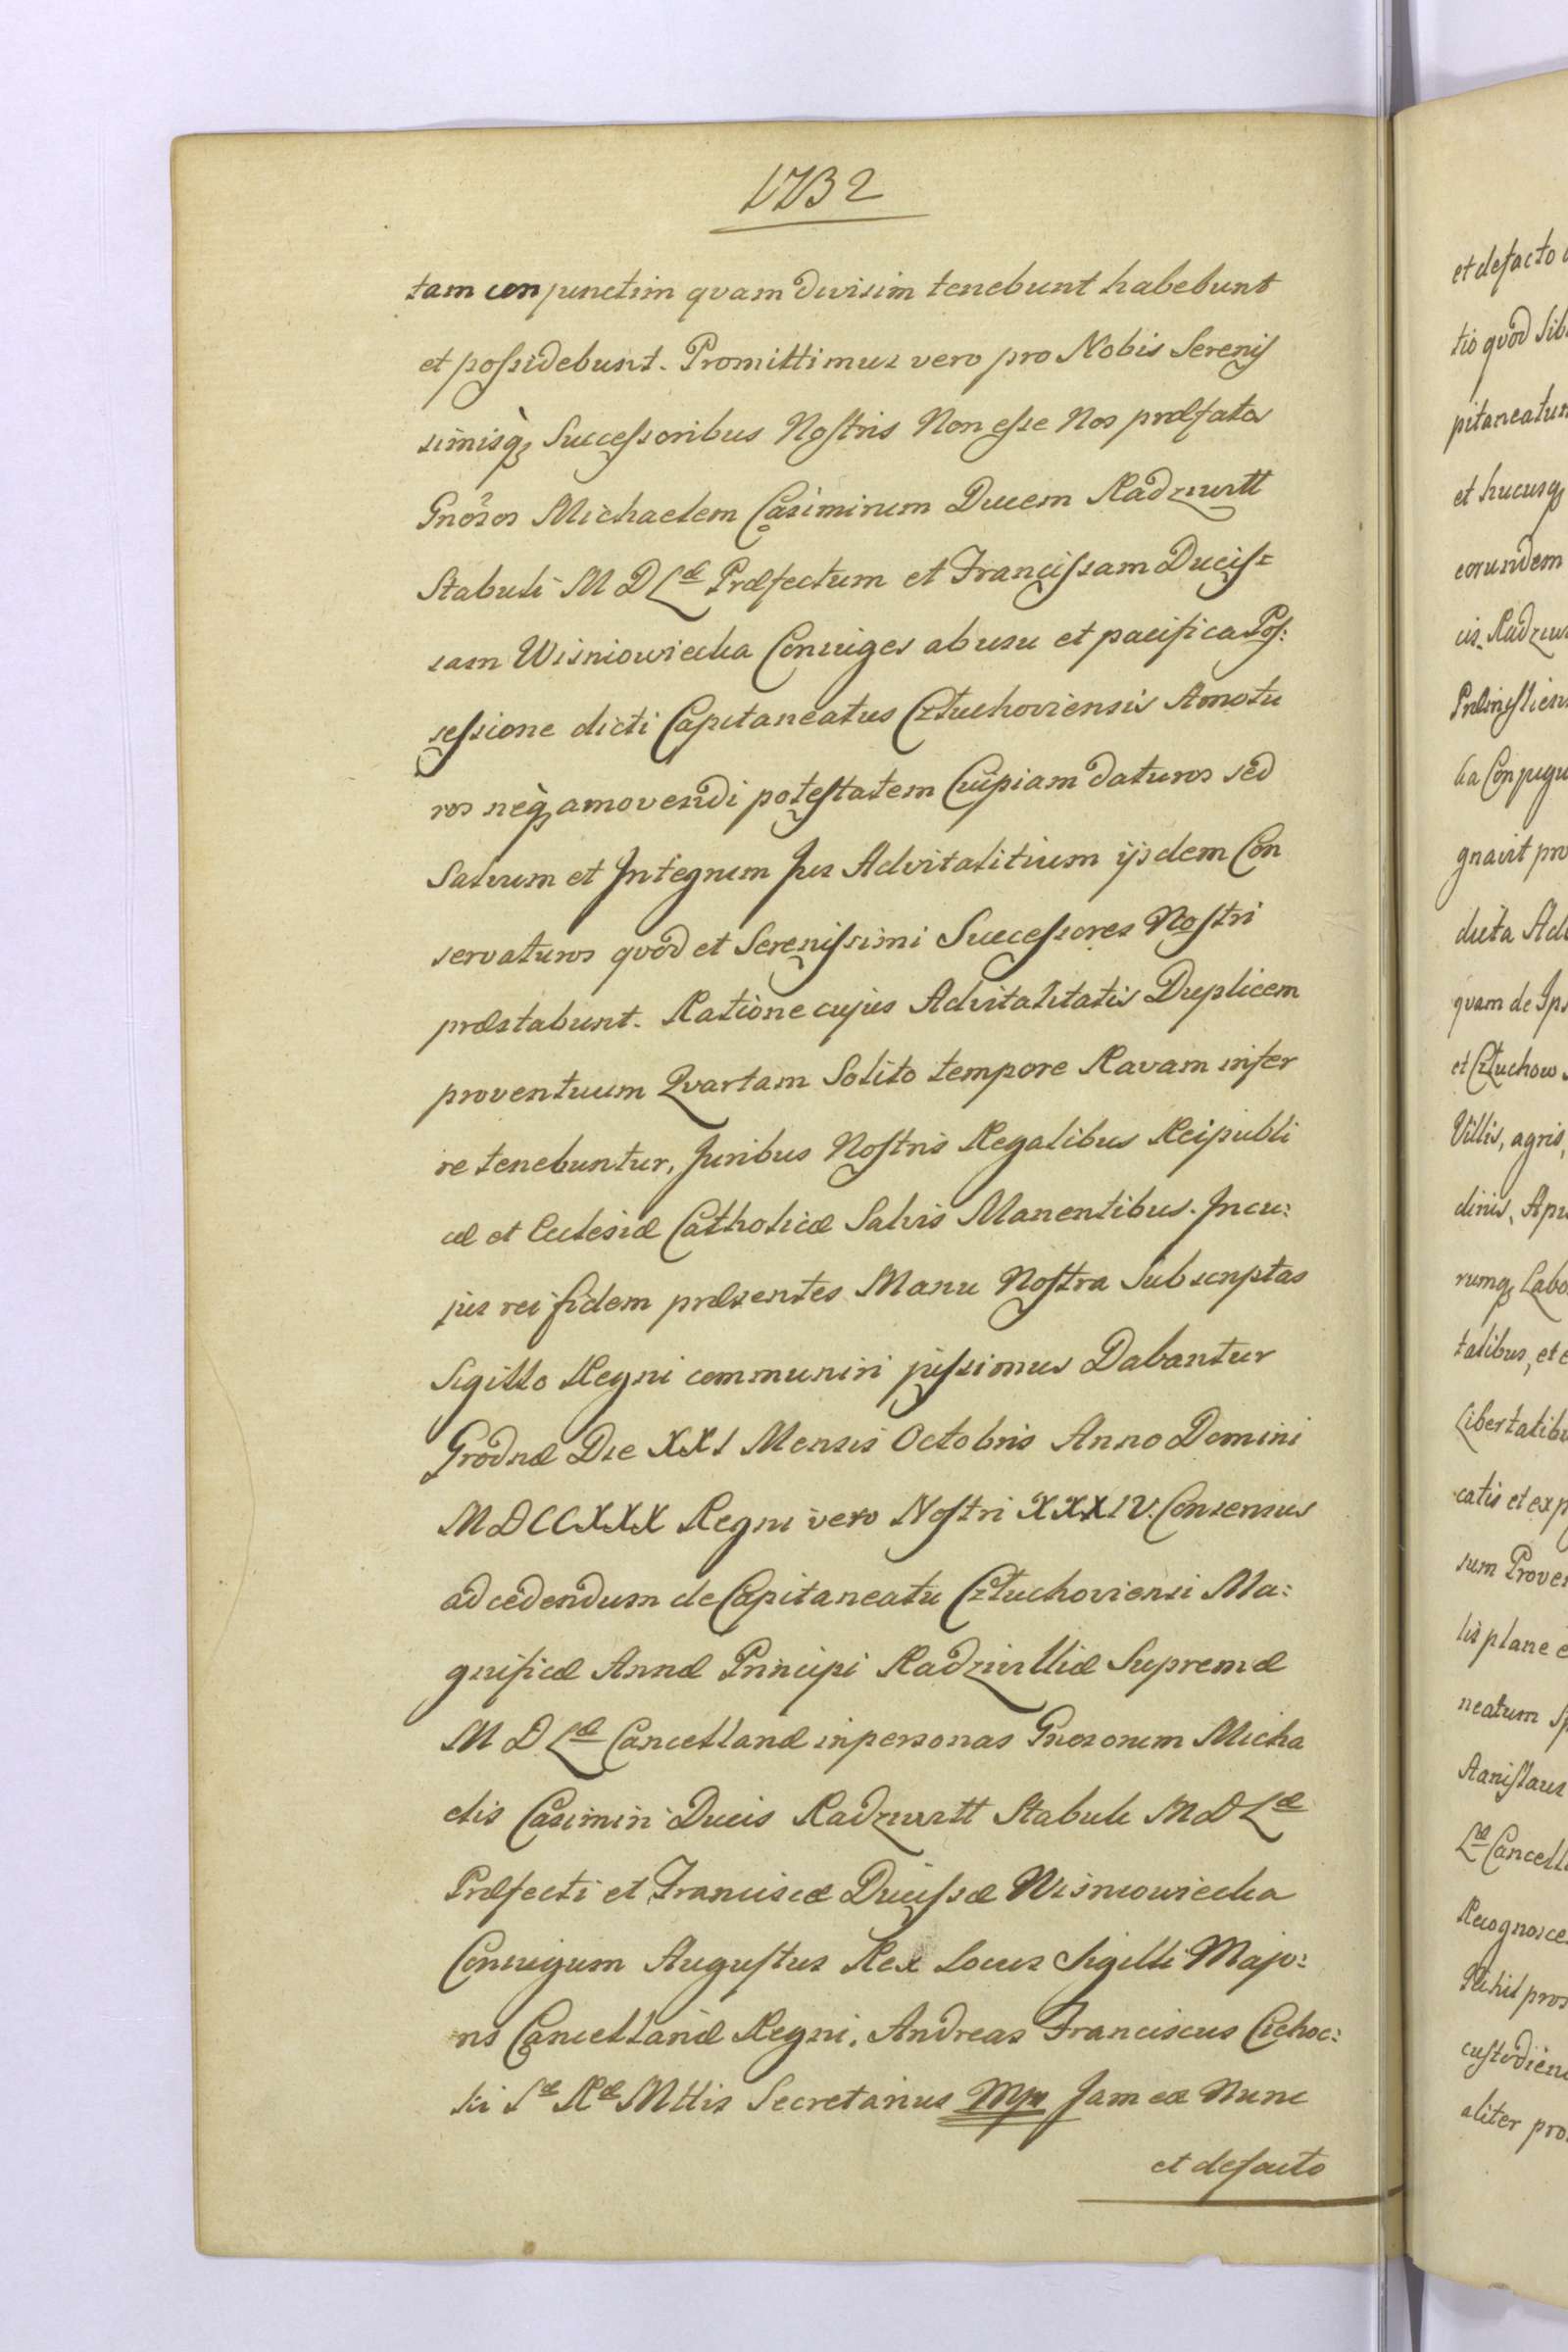 1732
tam conjunctim qvam divisim tenebunt habebunt
et possidebunt. Promittimus vero pro Nobis Serenis
simisq; Successoribus Nostris Non esse Nos præfatos
Gnosos Michaelem Casimirum Ducem Radziwiłł
Stabuli M D Læ Præfectum et Francissam Ducis=
sam Wisniowiecka Coniuges ab usu et pacifica Pos:
sessione dicti Capitaneatus Człuchoviensis Amotu
ros neq; amovendi potestatem Cuipiam daturos sed
Salvum et Integrum Jus Advitalitium ijsdem Con
servaturos qvod et Serenissimi Successores Nostri
præstabunt. Ratione cujus Advitalitatis Duplicem
proventuum Qvartam Solito tempore Ravam infer
re tenebuntur, Juribus Nostris Regalibus Reipubli
cæ et Ecclesiæ Catholicæ Salvis Manentibus. In cu:
jus rei fidem præsentes Manu Nostra Subscriptas
Sigillo Regni communiri jussimus Dabantur
Grodnæ Die XXI Mensis Octobris Anno Domini
MDCCXXX Regni vero Nostri XXXIV. Consensus
ad cedendum de Capitaneatu Człuchoviensi Ma:
gnificæ Annæ Principi Radziwilliæ Supremæ
M D Læ Cancellanæ in personas Gnosorum Micha
elis Casimiri Ducis Radziwiłł Stabuli M D Læ
Præfecti et Franciscæ Ducissæ Wisniowiecka
Coniugum Augustus Rex Locus Sigilli Majo:
ris Cancellariæ Regni. Andreas Franciscus Cichoc:
ki Sæ Ræ Mttis Secretarius Mpr Jam ex Nunc
et defacto
et defacto
tio qvod sib
pitaneatum
et hucusq;
eorundem
cis Radziw
ka Conjugu
gnavit pro
ducta Adv
qvam de Ips
et Człuchow
Villis, agris,
dinis, Api
rumq; Labo
talibus, et
Libertatibu
catis et exp
sum Prove
lis plane e
neatum Sp
Stanislaus
Læ Cancell
Recognosce
Nihil pro
custodien
aliter pro